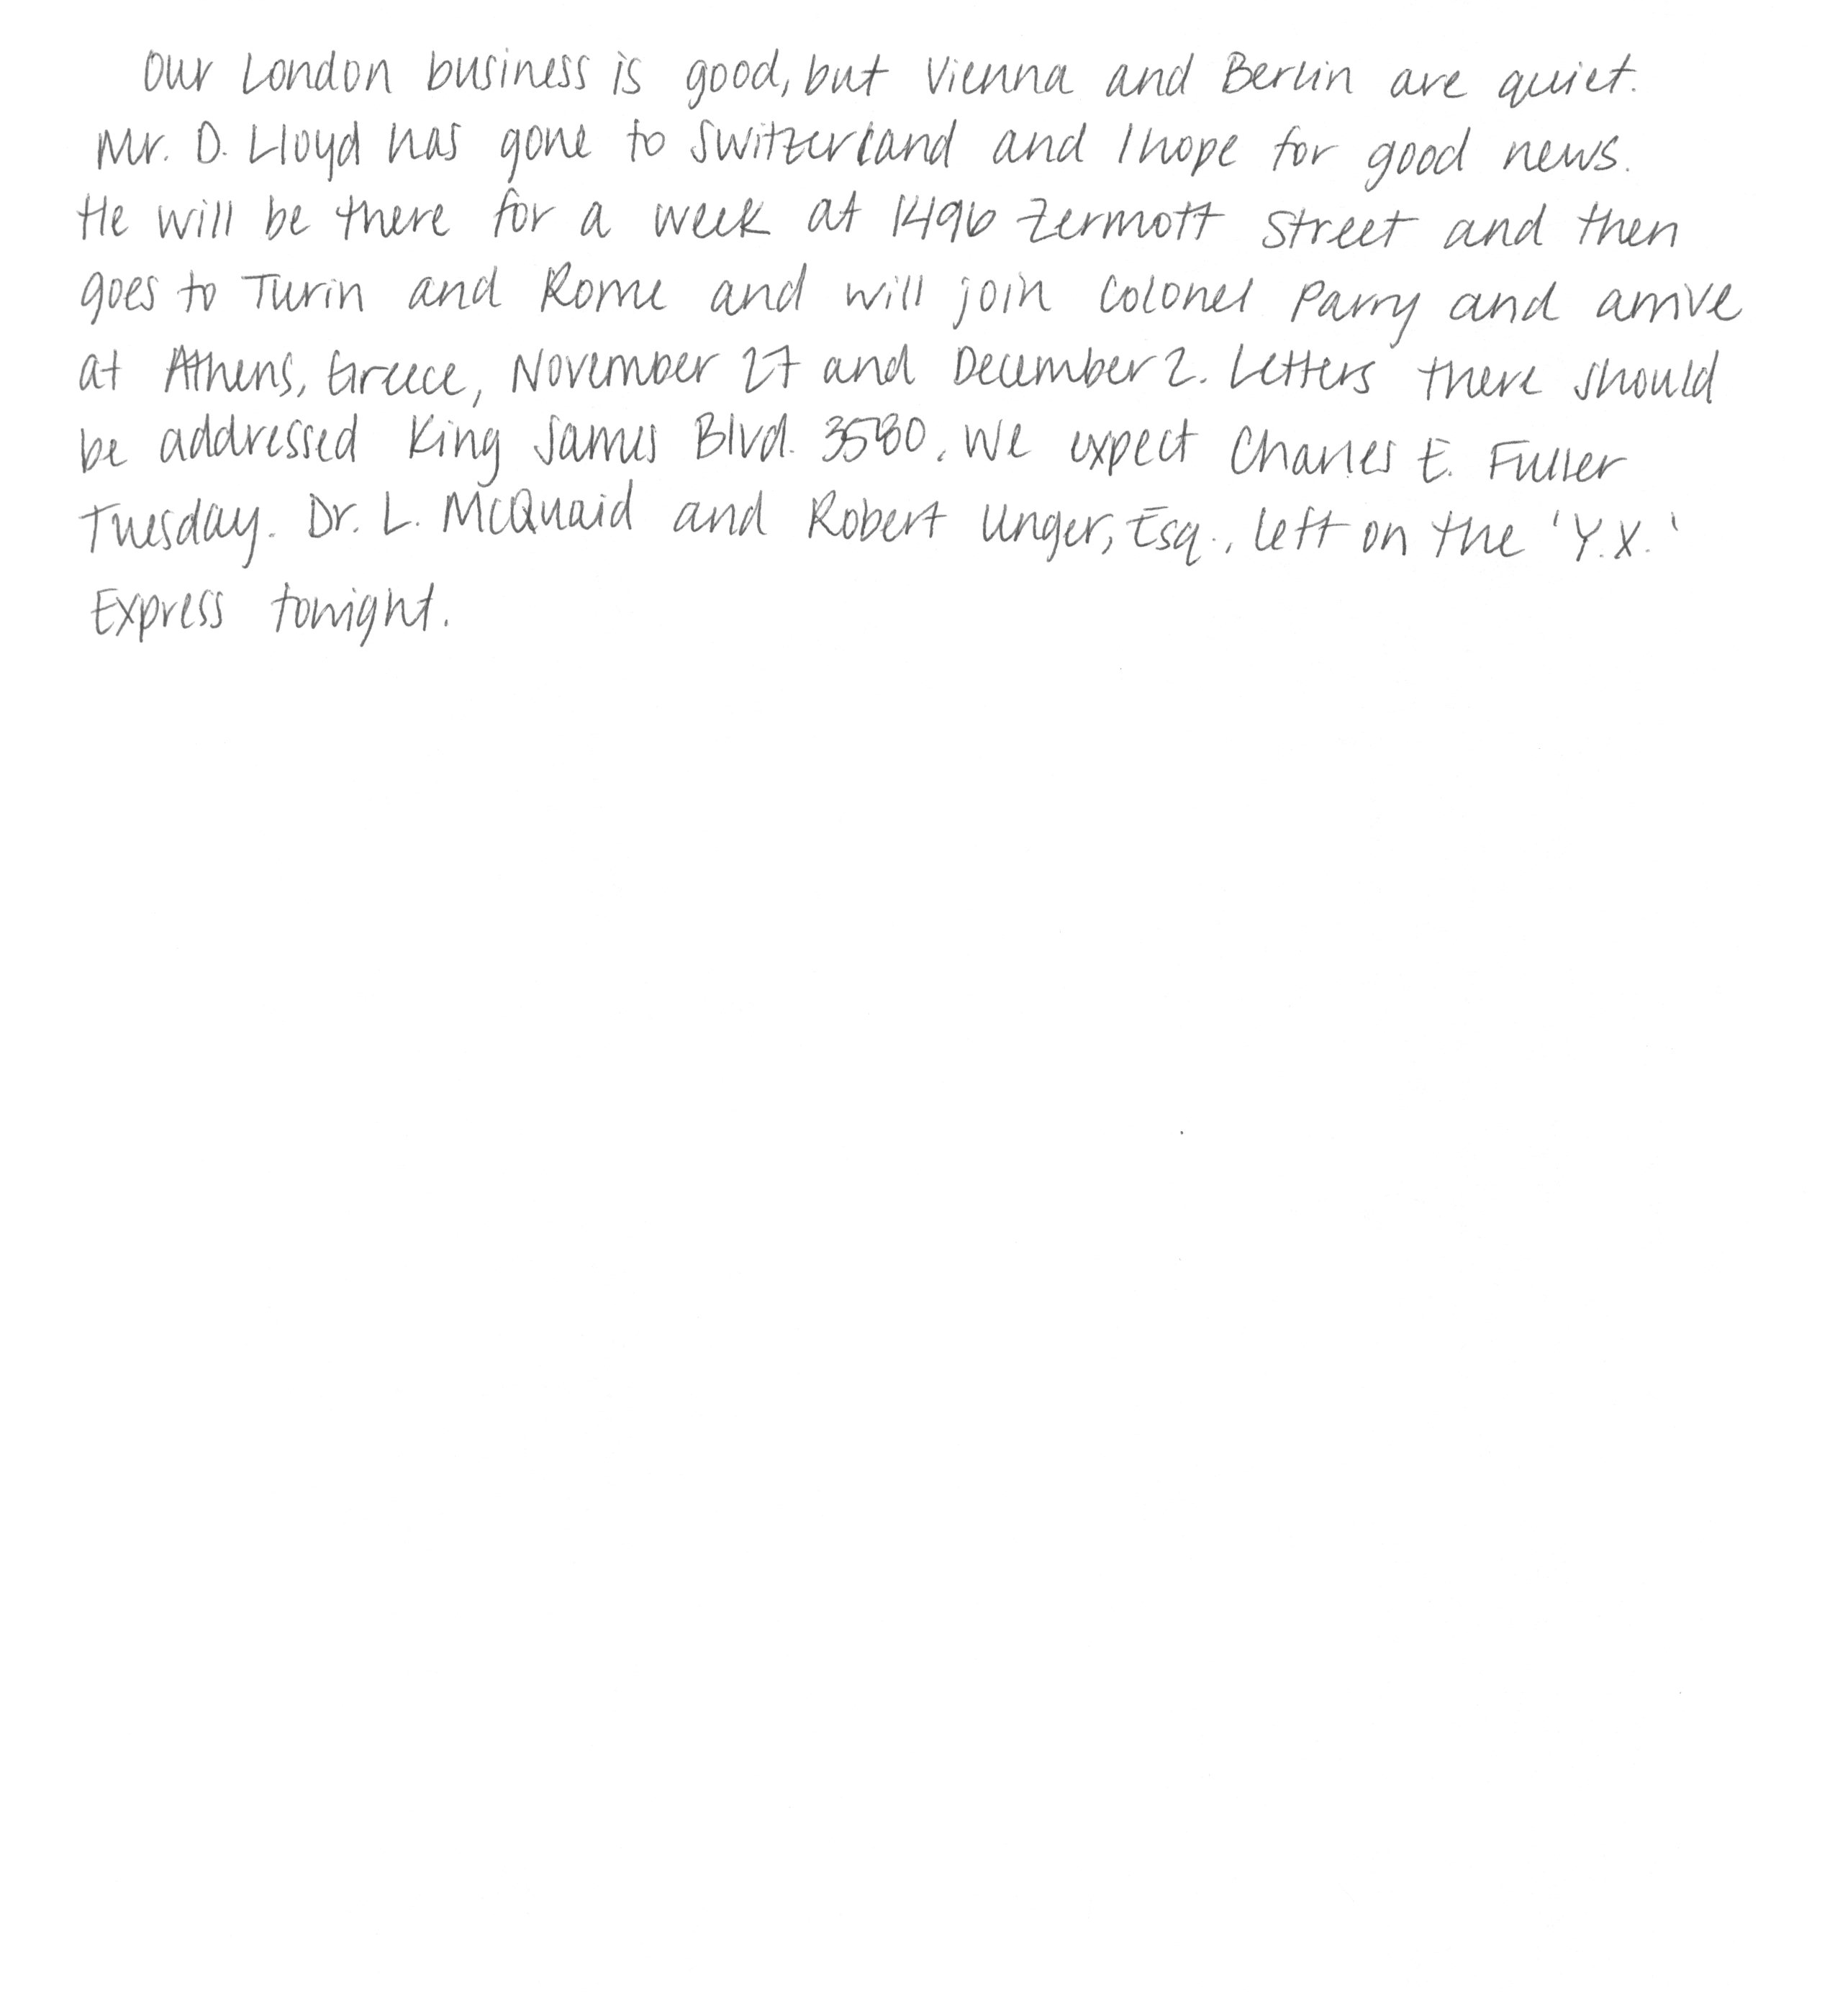 Our London business is good, but Vienna and Berlin are quiet.
Mr. D. Lloyd has gone to Switzerland and I hope for good news.
He will be there for a week at 1496 Zermott Street and then
goes to Turin and Rome and will join Colonel Parry and arrive
at Athens, Greece, November 27 and December 2. Letters there should
be addressed King James Blvd. 3580. We expect Charles E. Fuller
Tuesday. Dr. L. McQuaid and Robert Unger, Esq., left on the 'Y.X.'
Express tonight.